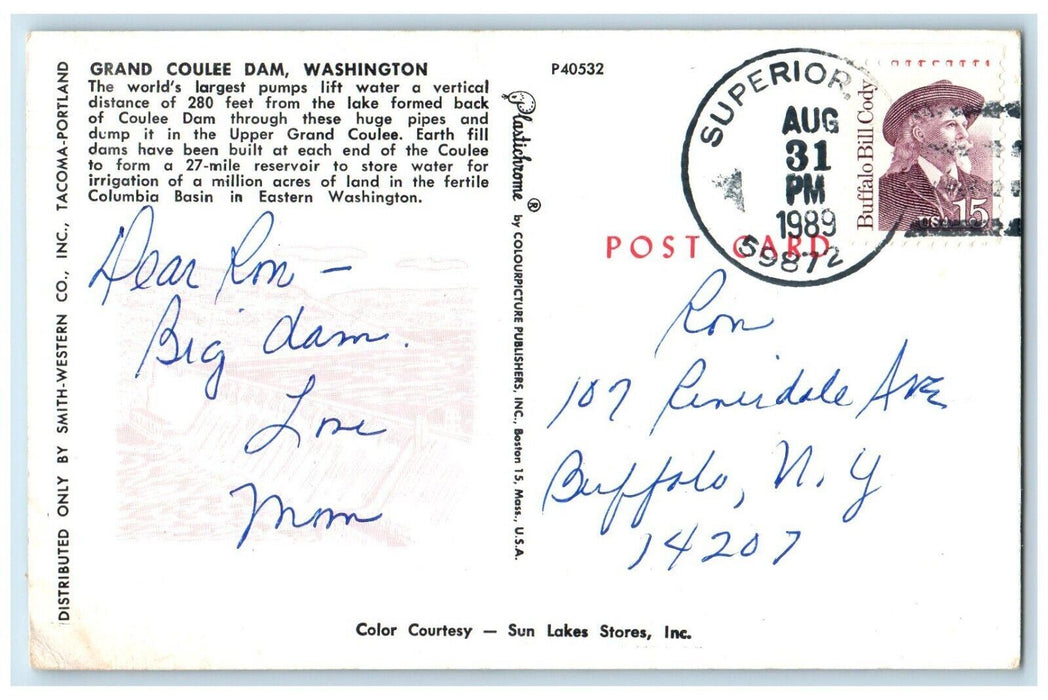 GRAND COULEE DAM, WASHINGTON
The world's largest pumps lift water a vertical
distance of 280 feet from the lake formed back
of Coulee Dam through these huge pipes and
dump it in the Upper Grand Coulee. Earth fill
dams have been built at each end of the Coulee
to form a 27-mile reservoir to store water for
irrigation of a million acres of land in the fertile
Columbia Basin in Eastern Washington.
DISTRIBUTED ONLY BY SMITH-WESTERN CO., INC., TACOMA-PORTLAND
Dear Ron –
Big dam.
Love
Mom
Plastichrome ® by COLOURPICTURE PUBLISHERS, INC., Boston 15, Mass., U.S.A.
P40532
SUPERIOR,
AUG
31
PM
1989
59872
Buffalo Bill Cody
USA 15
POST CARD
Ron
107 Riverdale Ave
Buffalo, N.Y
14207
Color Courtesy — Sun Lakes Stores, Inc.